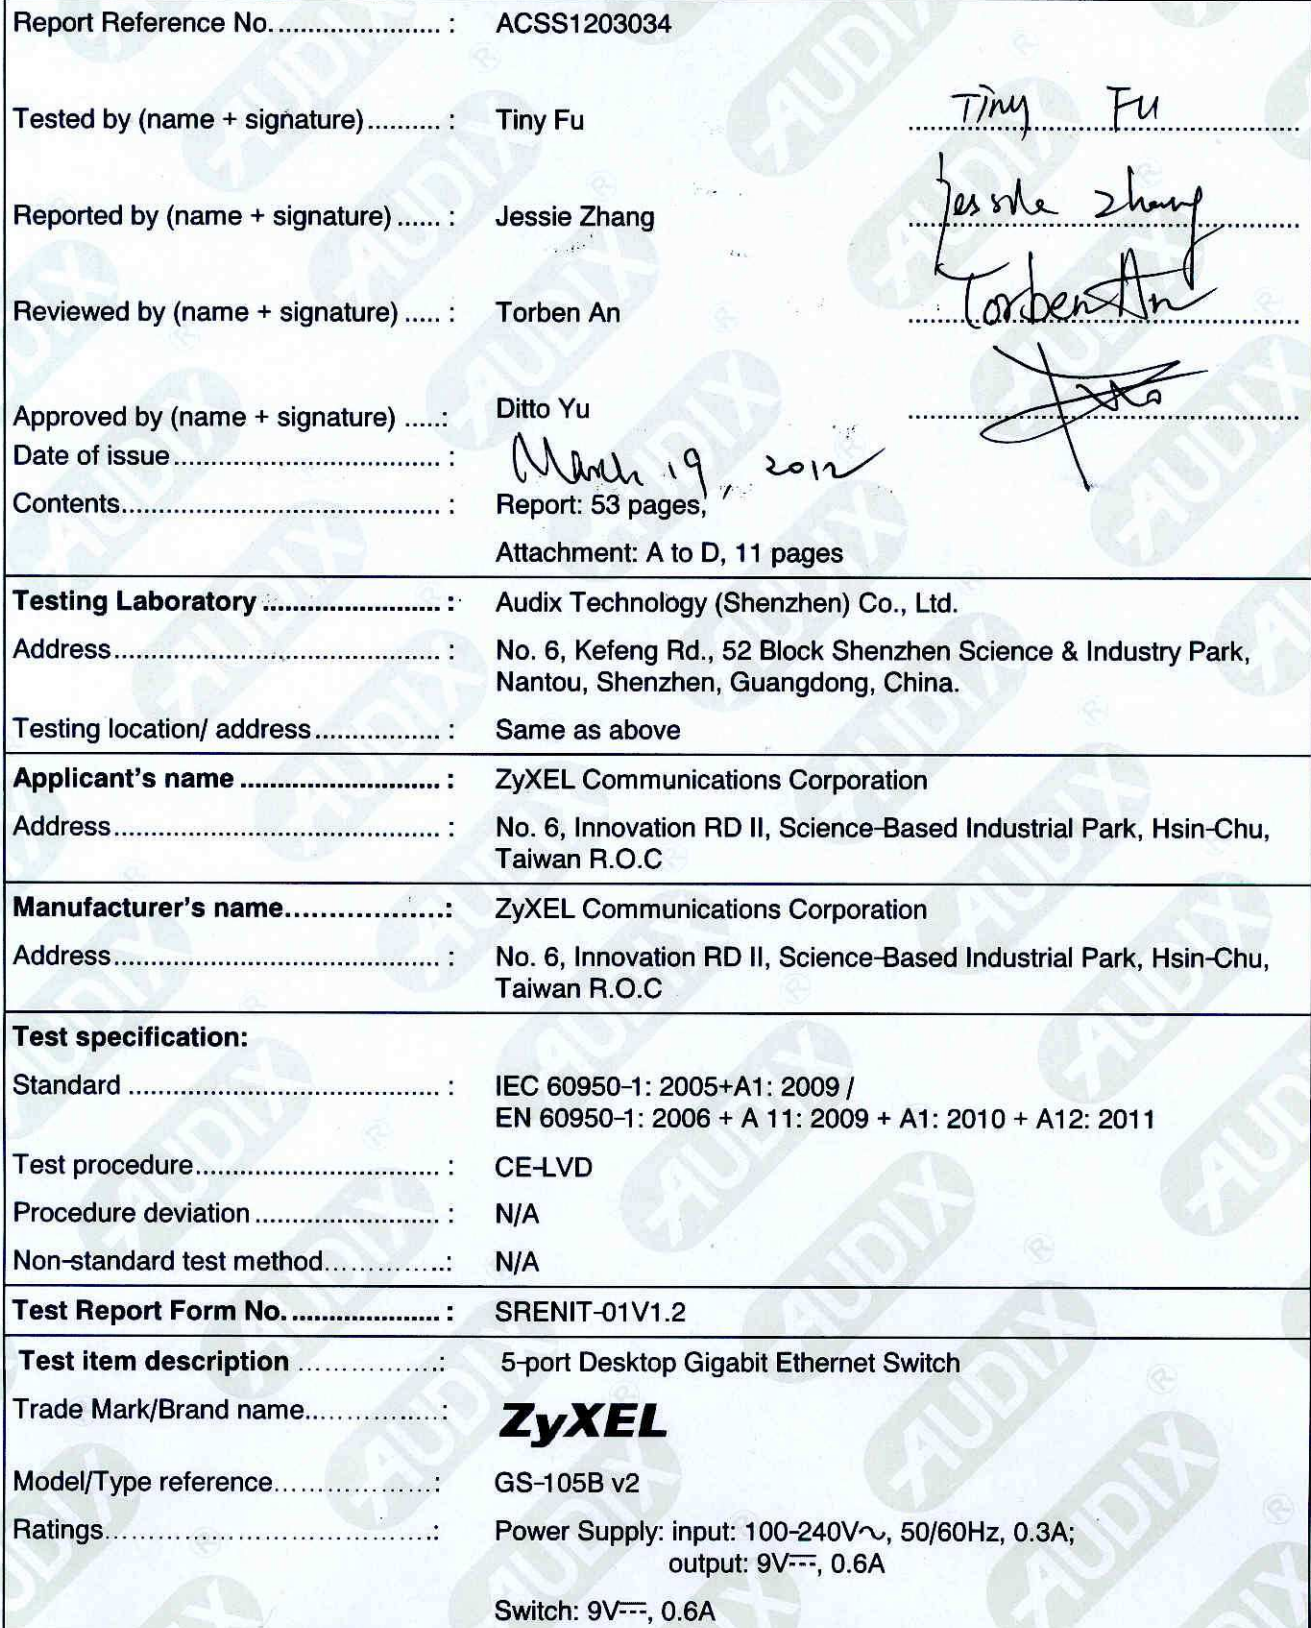 Report Reference No. ....................... : ACSS1203034
Tested by (name + signature) .......... : Tiny Fu Tiny Fu
Reported by (name + signature) ...... : Jessie Zhang Jessie Zhang
Reviewed by (name + signature) ..... : Torben An Torben An
Approved by (name + signature) .....: Ditto Yu
Date of issue ..................................... : March 19, 2012
Contents ............................................ : Report: 53 pages,
Attachment: A to D, 11 pages
Testing Laboratory ........................ : Audix Technology (Shenzhen) Co., Ltd.
Address ............................................. : No. 6, Kefeng Rd., 52 Block Shenzhen Science & Industry Park,
Nantou, Shenzhen, Guangdong, China.
Testing location/ address ................. : Same as above
Applicant's name ........................... : ZyXEL Communications Corporation
Address ............................................. : No. 6, Innovation RD II, Science-Based Industrial Park, Hsin-Chu,
Taiwan R.O.C
Manufacturer's name...................: ZyXEL Communications Corporation
Address ............................................. : No. 6, Innovation RD II, Science-Based Industrial Park, Hsin-Chu,
Taiwan R.O.C
Test specification:
Standard ........................................... : IEC 60950-1: 2005+A1: 2009 /
EN 60950-1: 2006 + A 11: 2009 + A1: 2010 + A12: 2011
Test procedure .................................. : CE-LVD
Procedure deviation .......................... : N/A
Non-standard test method..............: N/A
Test Report Form No. ..................... : SRENIT-01V1.2
Test item description ................: 5-port Desktop Gigabit Ethernet Switch
Trade Mark/Brand name...............: ZyXEL
Model/Type reference.................: GS-105B v2
Ratings...................................: Power Supply: input: 100-240V~, 50/60Hz, 0.3A;
output: 9V⎓, 0.6A
Switch: 9V⎓, 0.6A
AUDIX ®